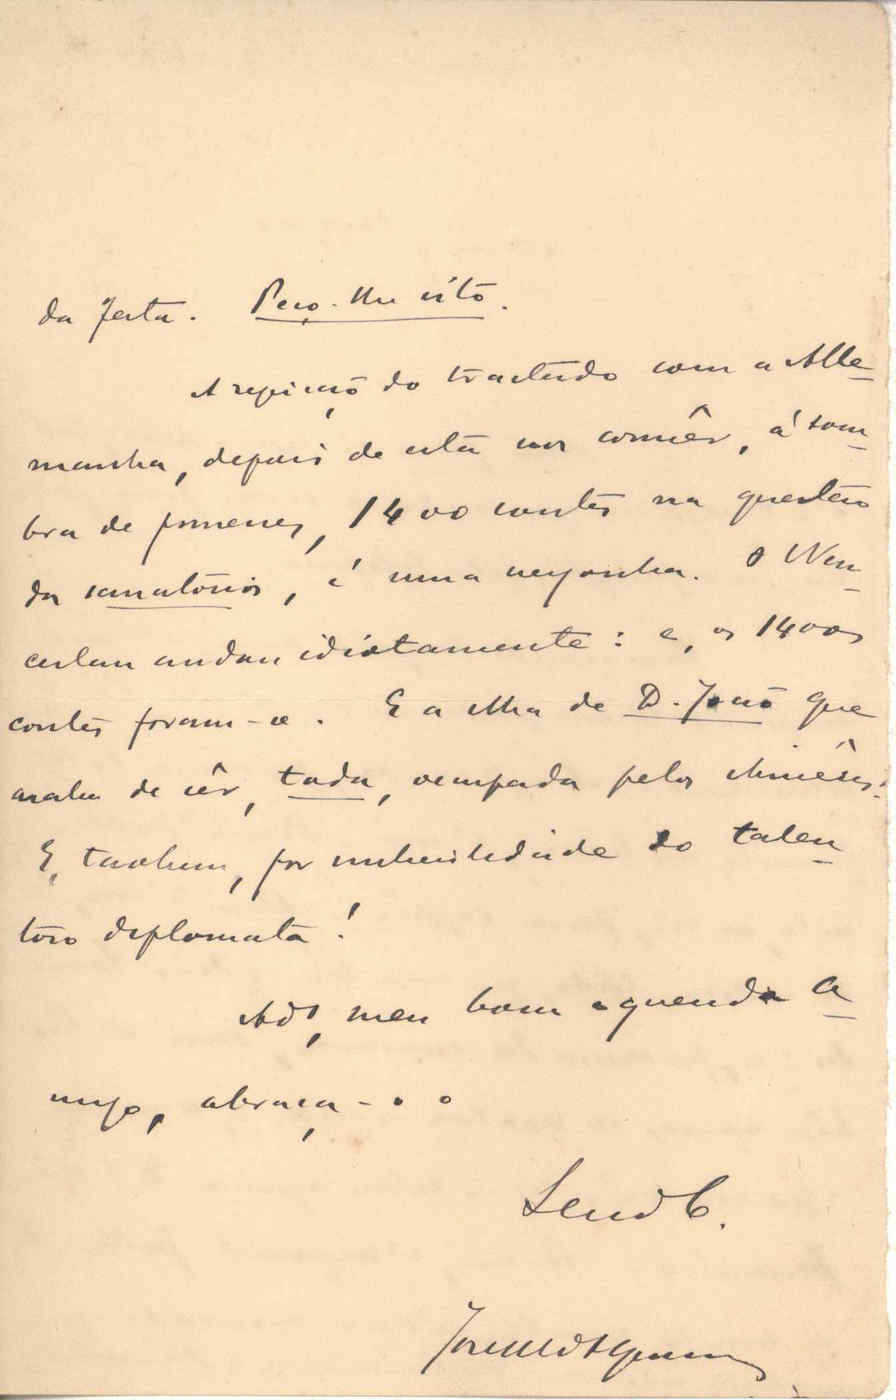 da festa. Peço-lhe isto.
A rejeição do tractado com a Alle-
manha, depois de esta nos comêr, á som-
bra de              , 1400 contos na questão
dos sanatorios, é uma vergonha. O Wen-
ceslau andou idiotamente: e, os 1400
contos foram-se. E a ilha de D. João que
acabo de vêr, toda, occupada pelos chinêses.
E, tambem, por imbecilidade do talen-
toso diplomata!
Ads, meu bom e querido a-
migo, abraça-o o
Seu d C.